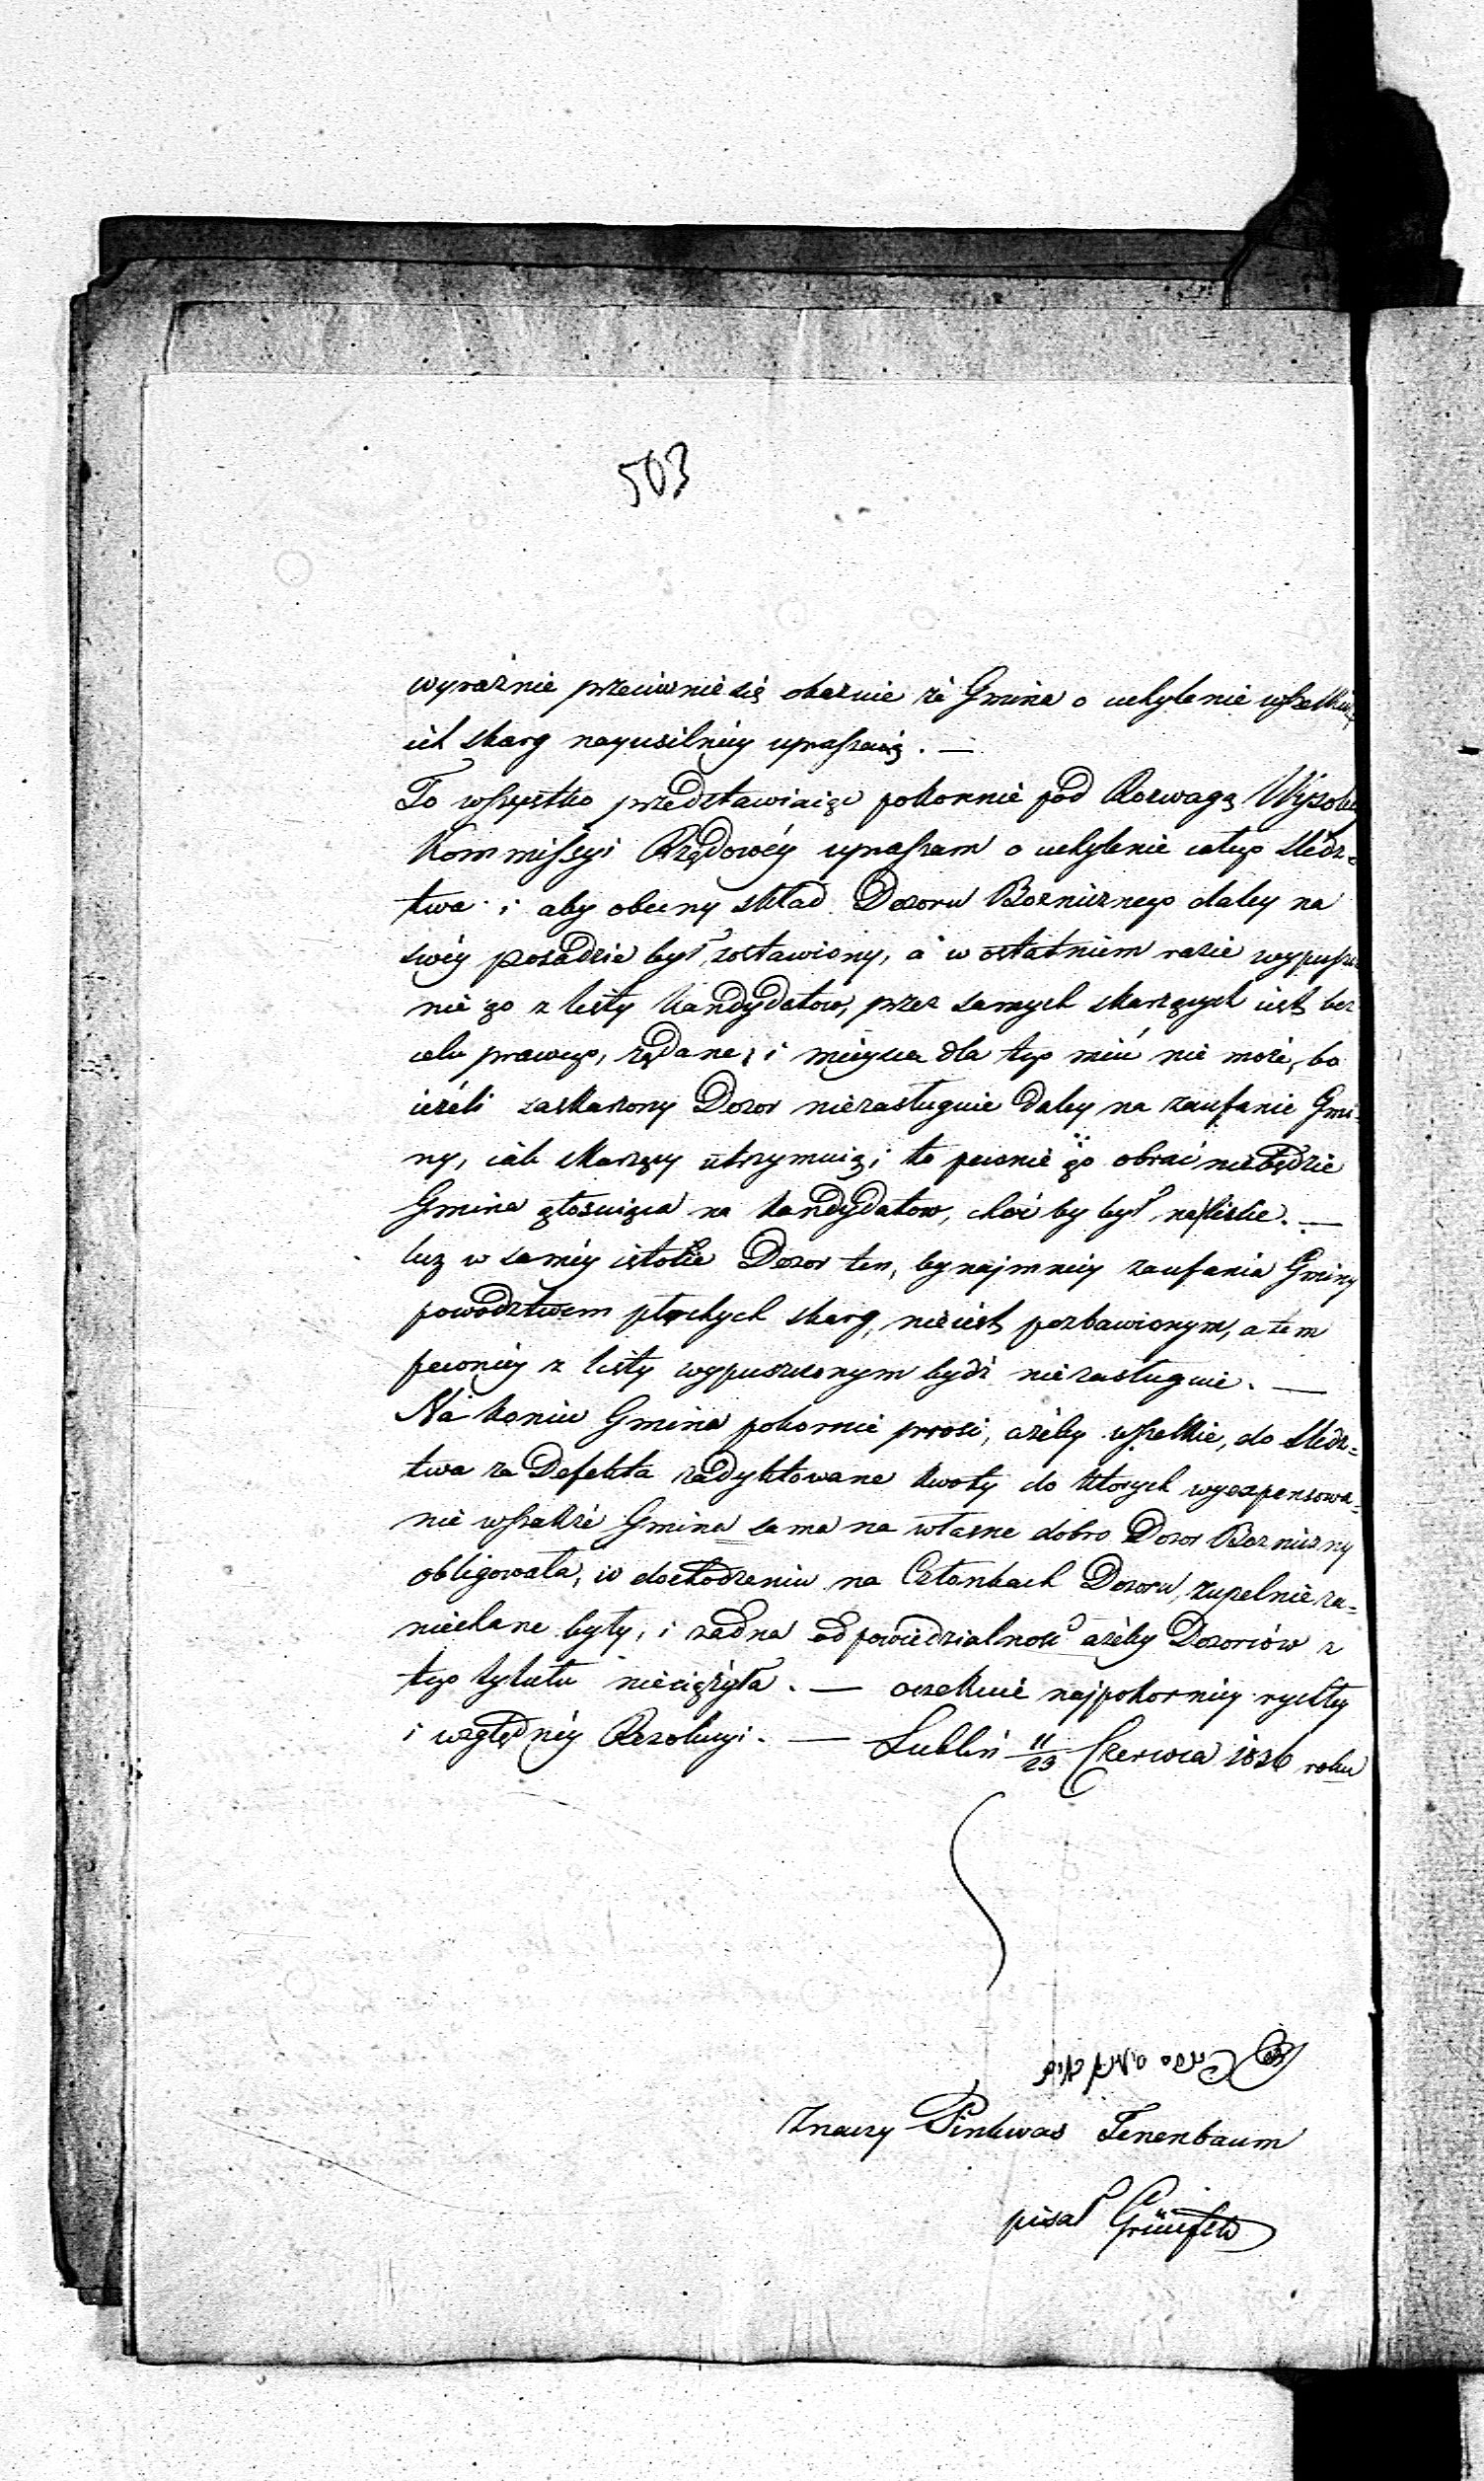 503
wyraźnie przeciwnie się okazuie że Gmina o uchylenie wszelkich
ich skarg nayusilniéy upraszaią. —
To wszystko przedstawiaiąc pokornie pod Rozwagę Wysokiey
Kommissyi Rządowéy upraszam o uchylenie całego śledz=
twa i aby obecny skład Dozoru Boznicznego daley na
swéy posadzie był zostawiony, a w ostatnim razie wypuszcze
nie go z listy Kandydatow, przez samych skarzących iest bez
celu prawego, rządane, i mieysca dla tego mieć nie może, bo
ieżeli zaskarzony Dozor niezasługuie daley na zaufanie Gmi=
ny, iak skarzący utrzymuią, to pewnie go obrać niebędzie
Gmina głosuiąca na Kandydatow, choć by był na liscie. —
lecz w saméy istocie Dozor ten, bynajmniéy zaufania Gminy
powodztwem płochych skarg, nieiest pozbawionym, a tem
pewniéy z listy wypuszczonym bydź niezasługuie. —
Na koniec Gmina pokornie prosi, ażeby wszelkie, do śledz=
twa za Defekta zadyktowane kwoty do ktorych wyexpensowa=
nie wszakże Gmina sama na własne dobro Dozor Bozniczny
obligowała, w dochodzeniu na Członkach Dozoru, zupelnie za=
niechane były, i zadna odpowiedzialność ażeby Dozorców z
tego tytułu niecięzyła. — oczekuie najpokorniéy rychłey
i względnéy Rezolucyi. — Lublin 11/23 Czerwca 1836 roku
Znaczy Pinkwas Tenenbaum
pisał Grünfeld